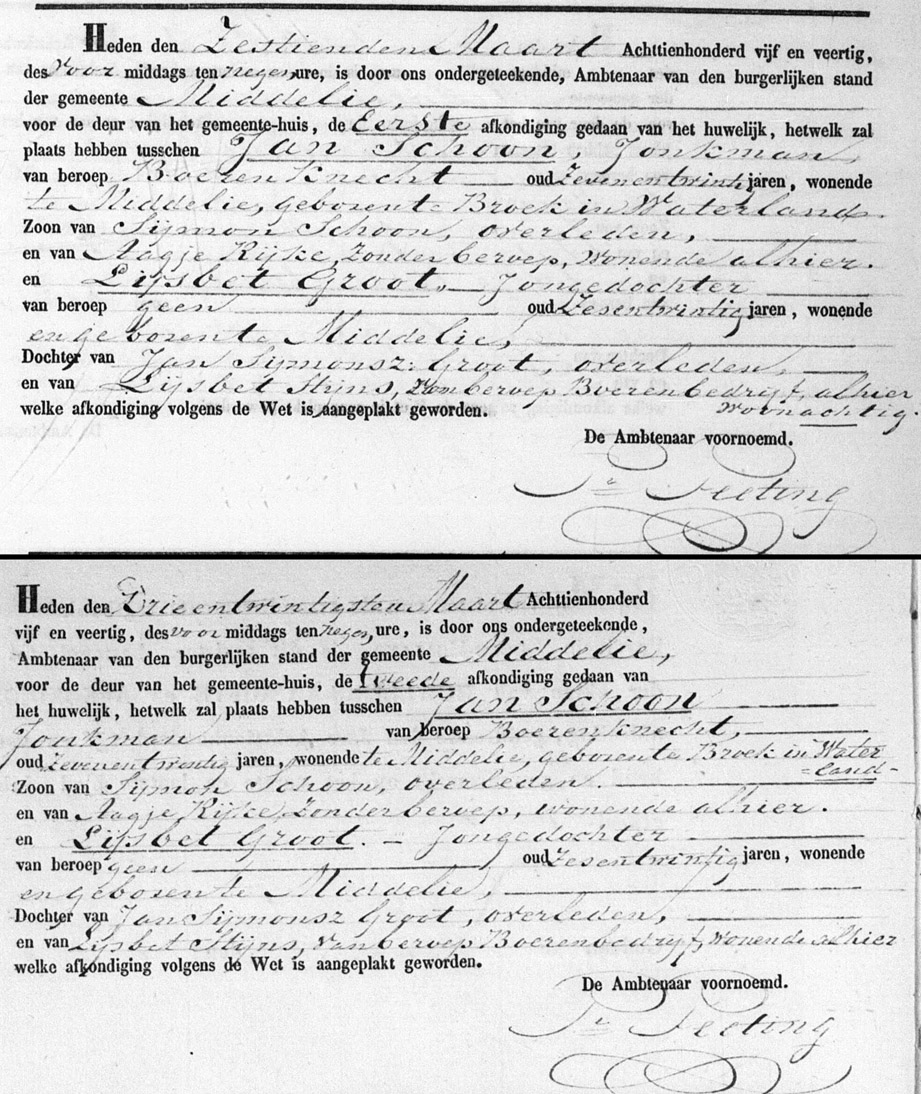 Heden den Zestienden Maart Achttienhonderd vijf en veertig,
des voor middags ten negen ure, is door ons ondergeteekende, Ambtenaar van den burgerlijken stand
der gemeente Middelie,
voor de deur van het gemeente-huis, de Eerste afkondiging gedaan van het huwelijk, hetwelk zal
plaats hebben tusschen Jan Schoon, Jonkman,
van beroep Boerenknecht oud Zevenentwintig jaren, wonende
te Middelie, geboren te Broek in Waterland.
Zoon van Sijmon Schoon, overleden,
en van Aagje Rijke, zonder beroep, wonende alhier.
en Lijsbet Groot, Jongedochter
van beroep geen oud Zesentwintig jaren, wonende
en geboren te Middelie,
Dochter van Jan Sijmonsz: Groot, overleden,
en van Lijsbet Stijns, van beroep Boerenbedrijf, alhier
woonachtig.
welke afkondiging volgens de Wet is aangeplakt geworden.
De Ambtenaar voornoemd.
Peeting
Heden den Drieentwintigsten Maart Achttienhonderd
vijf en veertig, des voor middags ten negen, ure, is door ons ondergeteekende,
Ambtenaar van den burgerlijken stand der gemeente Middelie,
voor de deur van het gemeente-huis, de tweede afkondiging gedaan van
het huwelijk, hetwelk zal plaats hebben tusschen Jan Schoon
Jonkman van beroep Boerenknecht,
oud Zevenentwintig jaren, wonende te Middelie, geboren te Broek in Water
=land=
Zoon van Sijmon Schoon, overleden.
en van Aagje Rijke, zonder beroep, wonende alhier.
en Lijsbet Groot. – Jongedochter
van beroep geen oud Zesentwintig jaren, wonende
en geboren te Middelie,
Dochter van Jan Sijmonsz Groot, overleden,
en van Lijsbet Stijns, van beroep Boerenbedrijf, wonende alhier
welke afkondiging volgens de Wet is aangeplakt geworden.
De Ambtenaar voornoemd.
Peeting